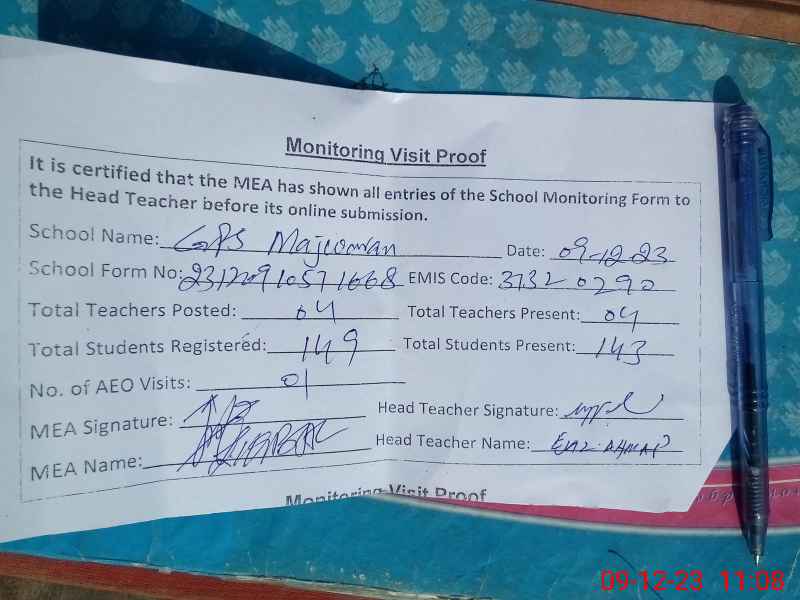 Monitoring Visit Proof
It is certified that the MEA has shown all entries of the School Monitoring Form to
the Head Teacher before its online submission.
School Name: GPS Majuoman Date: 09-12-23
School Form No: 23120910571668 EMIS Code: 31320290
Total Teachers Posted: 04 Total Teachers Present: 04
Total Students Registered: 149 Total Students Present: 143
No. of AEO Visits: 01
MEA Signature: Head Teacher Signature:
MEA Name: Head Teacher Name: AHMAD
Monitoring Visit Proof
09-12-23 11:08